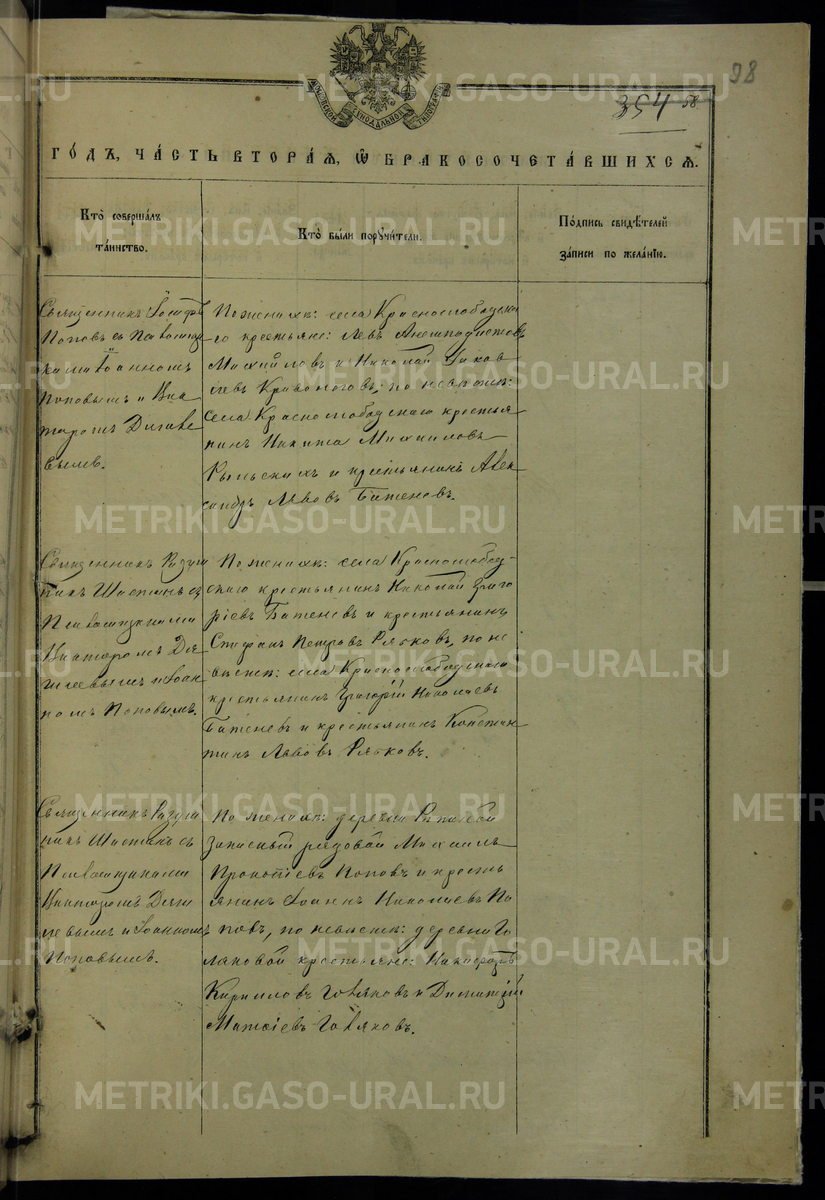 98
354 58
МОСКОВСКОЙ СѴНОДАЛЬНОЙ ТИПОГРАФІИ
ГО́ДЪ, ЧА́СТЬ ВТОРА́Я, Ѿ БРАКОСОЧЕТА́ВШИХСЯ.
Кто̀ соверша́лъ
та́инство.
Кто̀ бы́ли порꙋчи́тели.
По́дпись свидѣ́телей
за́писи по жела́нїю.
Священникъ Іосифъ
Поповъ съ Псаломщи
ками Іоанномъ
Поповымъ и Вик
торомъ Дягиле
вымъ.
По женихѣ: села Краснослободска
го крестьяне: Левъ Анемподистовъ
Михайловъ и Николай Яков
левъ Кривоноговъ; по невѣстѣ:
села Краснослободскаго крестья
нинъ Никита Михаиловъ
Рыльскихъ и крестьянинъ Алек
сандръ Львовъ Батеневъ.
Священникъ
никъ съ
Псаломщиками
Викторомъ Дя
гилевымъ и Іоан
номъ Поповымъ.
По женихѣ: села Краснослобод-
скаго крестьянинъ Николай Григо
ріевъ Батеневъ и крестьянинъ
Стефанъ Петровъ Рябковъ, по не
вѣстѣ: села Краснослободскаго
крестьянинъ Григорій Николаевъ
Батеневъ и крестьянинъ Констан
тинъ Львовъ Рябковъ.
Священникъ
никъ съ
Псаломщиками
Викторомъ Дяги
левымъ и Іоанномъ
Поповымъ.
По женихѣ: деревни
запасный рядовой Михаилъ
Прокопіевъ Поповъ и кресть
янинъ Іоаннъ Николаевъ По
повъ, по невѣстѣ: деревни Го
ляковой крестьяне: Никифоръ
Кирилловъ Голяковъ и Димитрій
Матѳіевъ Голяковъ.
METRIKI.GASO-URAL.RU